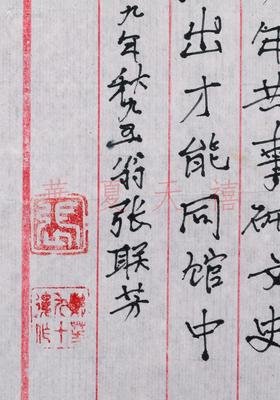 年共事研文史
出才能同馆中
九年秋九五翁张联芳
華夏天禧